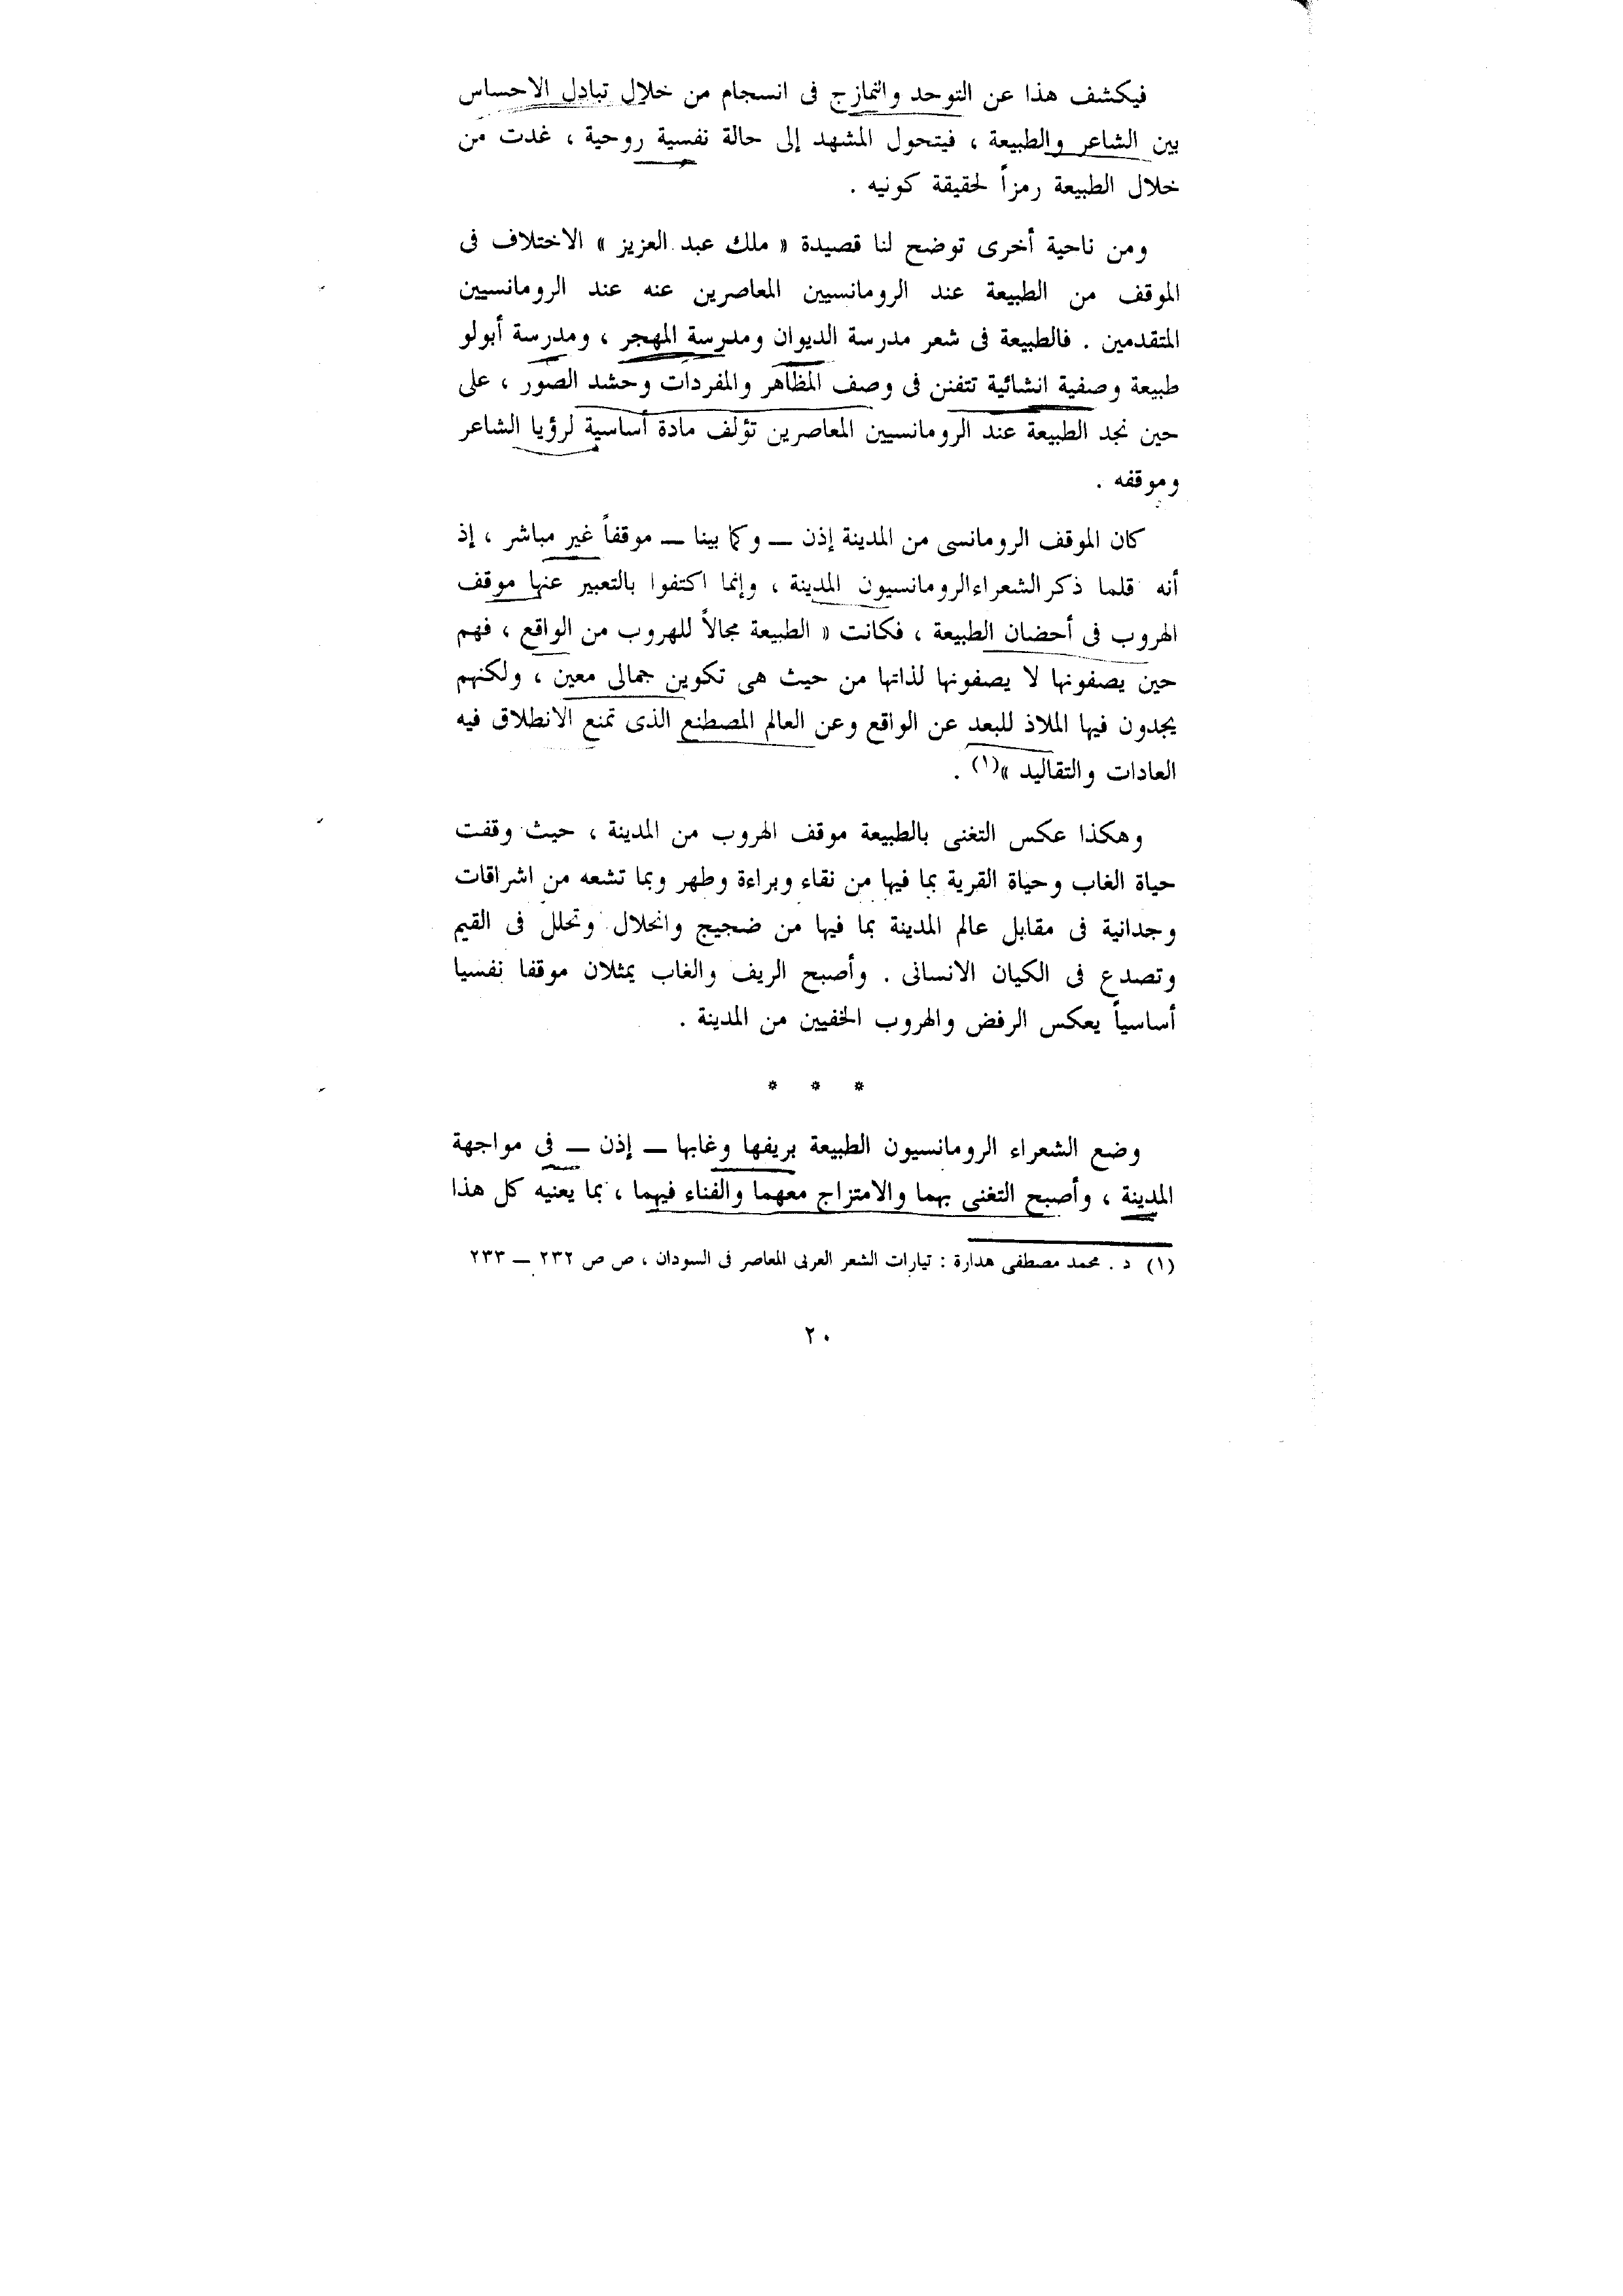 فيكشف هذا عن التوحد والتمازج فى انسجام من خلال تبادل الاحساس
بين الشاعر والطبيعة ، فيتحول المشهد إلى حالة نفسية روحية ، غدت من
خلال الطبيعة رمزاً لحقيقة كونيه .
ومن ناحية أخرى توضح لنا قصيدة « ملك عبد العزيز » الاختلاف فى
الموقف من الطبيعة عند الرومانسيين المعاصرين عنه عند الرومانسيين
المتقدمين . فالطبيعة فى شعر مدرسة الديوان ومدرسة المهجر ، ومدرسة أبولو
طبيعة وصفية انشائية تتفنن فى وصف المظاهر والمفردات وحشد الصور ، على
حين نجد الطبيعة عند الرومانسيين المعاصرين تؤلف مادة أساسية لرؤيا الشاعر
وموقفه .
كان الموقف الرومانسى من المدينة إذن — وكما بينا — موقفاً غير مباشر ، إذ
أنه قلما ذكر الشعراء الرومانسيون المدينة ، وإنما اكتفوا بالتعبير عنها موقف
الهروب فى أحضان الطبيعة ، فكانت « الطبيعة مجالاً للهروب من الواقع ، فهم
حين يصفونها لا يصفونها لذاتها من حيث هى تكوين جمالى معين ، ولكنهم
يجدون فيها الملاذ للبعد عن الواقع وعن العالم المصطنع الذى تمنع الانطلاق فيه
العادات والتقاليد »(١) .
وهكذا عكس التغنى بالطبيعة موقف الهروب من المدينة ، حيث وقفت
حياة الغاب وحياة القرية بما فيها من نقاء وبراءة وطهر وبما تشعه من اشراقات
وجدانية فى مقابل عالم المدينة بما فيها من ضجيج وانحلال وتحلل فى القيم
وتصدع فى الكيان الانسانى . وأصبح الريف والغاب يمثلان موقفا نفسيا
أساسياً يعكس الرفض والهروب الخفيين من المدينة .
* * *
وضع الشعراء الرومانسيون الطبيعة بريفها وغابها — إذن — فى مواجهة
المدينة ، وأصبح التغنى بهما والامتزاج معهما والفناء فيهما ، بما يعنيه كل هذا
(١) د . محمد مصطفى هدارة : تيارات الشعر العربى المعاصر فى السودان ، ص ص ٢٣٢ — ٢٣٣
٢٠